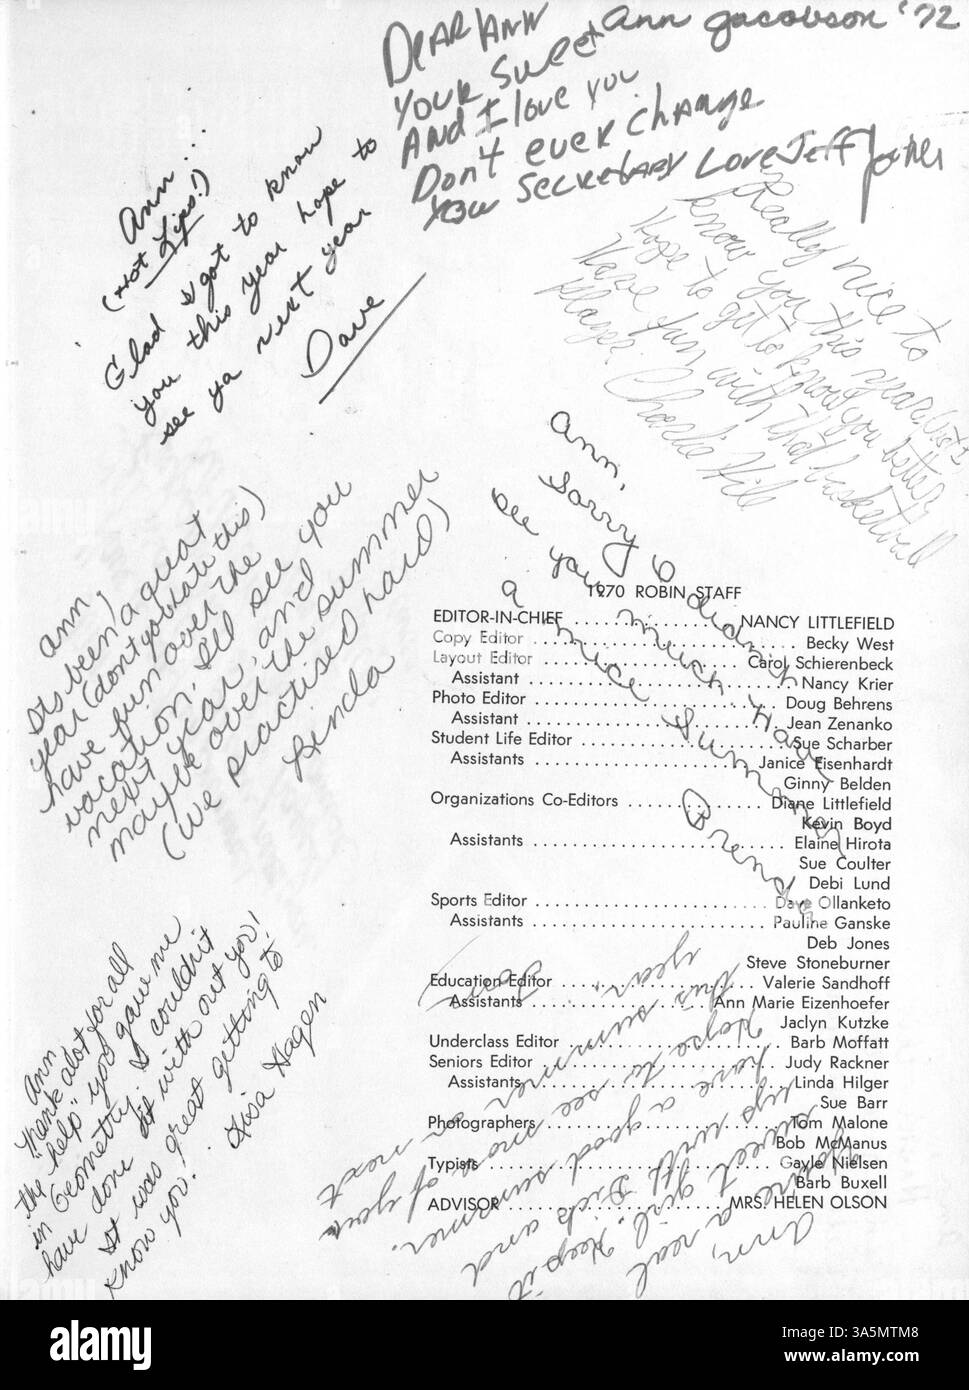 DEAR ANN
YOUR Sweet
AND I love you
DON'T ever Change
Your Secretary Love Jeff
Ann Jacobson '72
Ann...
(not Lips!)
Glad I got to know
you this year hope to
see ya next year
Dave
Really nice to
know you this year
Hope to get to know you better
Have fun with that basketball
player.
Charlie Hill
Ann,
Sorry I didn't
see you much Have
a nice summer
Brenda
Ann,
It's been a great
year (don't you hate this)
have fun over the
vacation, I'll see you
next year, and
maybe over the summer
(we practised hard)
Linda
1970 ROBIN STAFF
EDITOR-IN-CHIEF NANCY LITTLEFIELD
Copy Editor Becky West
Layout Editor Carol Schierenbeck
Assistant Nancy Krier
Photo Editor Doug Behrens
Assistant Jean Zenanko
Student Life Editor Sue Scharber
Assistants Janice Eisenhardt
Ginny Belden
Organizations Co-Editors Diane Littlefield
Kevin Boyd
Assistants Elaine Hirota
Sue Coulter
Debi Lund
Sports Editor Dave Ollanketo
Assistants Pauline Ganske
Deb Jones
Steve Stoneburner
Education Editor Valerie Sandhoff
Assistants Ann Marie Eizenhoefer
Jaclyn Kutzke
Underclass Editor Barb Moffatt
Seniors Editor Judy Rackner
Assistants Linda Hilger
Sue Barr
Photographers Tom Malone
Bob McManus
Typists Gayle Nielsen
Barb Buxell
ADVISOR MRS. HELEN OLSON
Ann
Thank alot for all
the "help" you gave me
in Geometry. I couldn't
have done it with out you!
It was great getting to
know you!
Lisa Hagen
Ann,
You're a real
sweet girl. Keep it
up with Dick and
have a good summer.
Hope to see more of you
this summer or next
year.
alamy
Image ID: 3A5MTM8
www.alamy.com